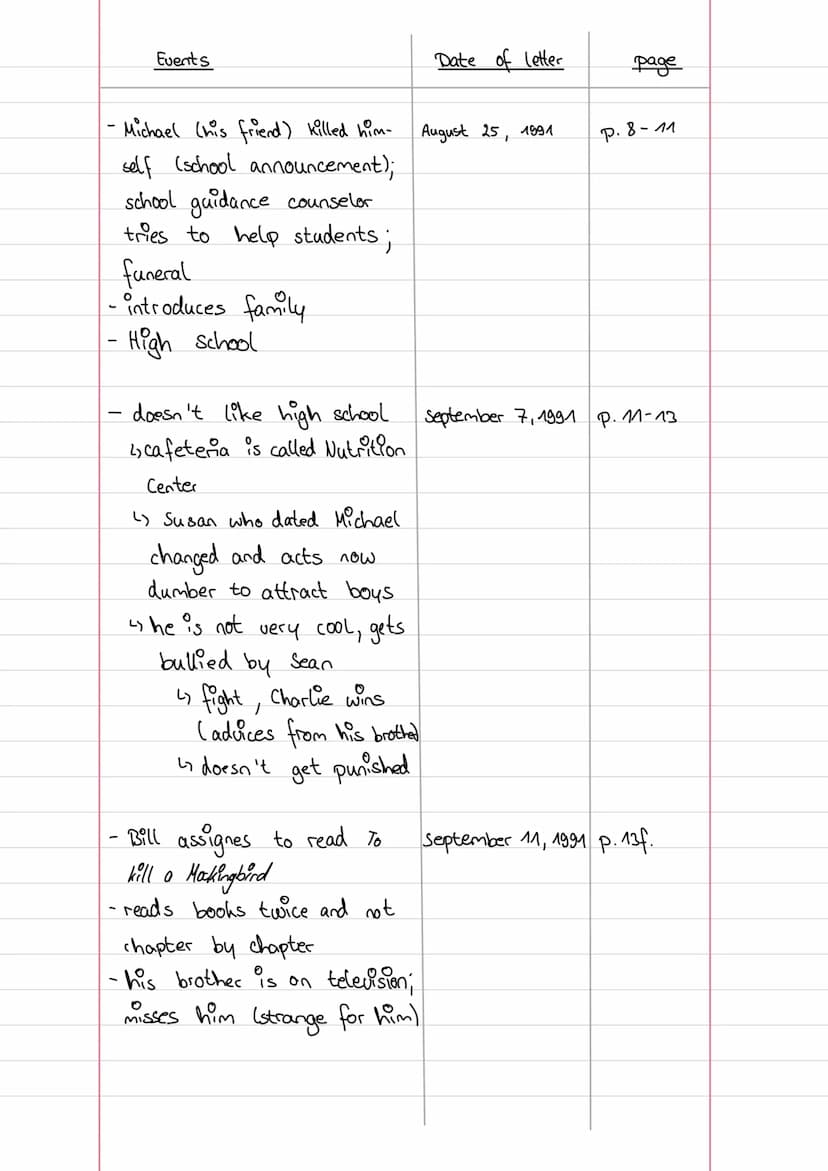 Events Date of letter page
- Michael (his friend) killed him- August 25, 1991 p. 8-11
self (school announcement);
school guidance counselor
tries to help students;
funeral
- introduces family
- High school
- doesn't like high school September 7, 1991 p. 11-13
↳ cafeteria is called Nutrition
Center
↳ Susan who dated Michael
changed and acts now
dumber to attract boys
↳ he is not very cool, gets
bullied by Sean
↳ fight, Charlie wins
(advices from his brother)
↳ doesn't get punished
- Bill assignes to read To September 11, 1991 p. 13f.
kill a Makingbird
- reads books twice and not
chapter by chapter
- his brother is on television;
misses him (strange for him)